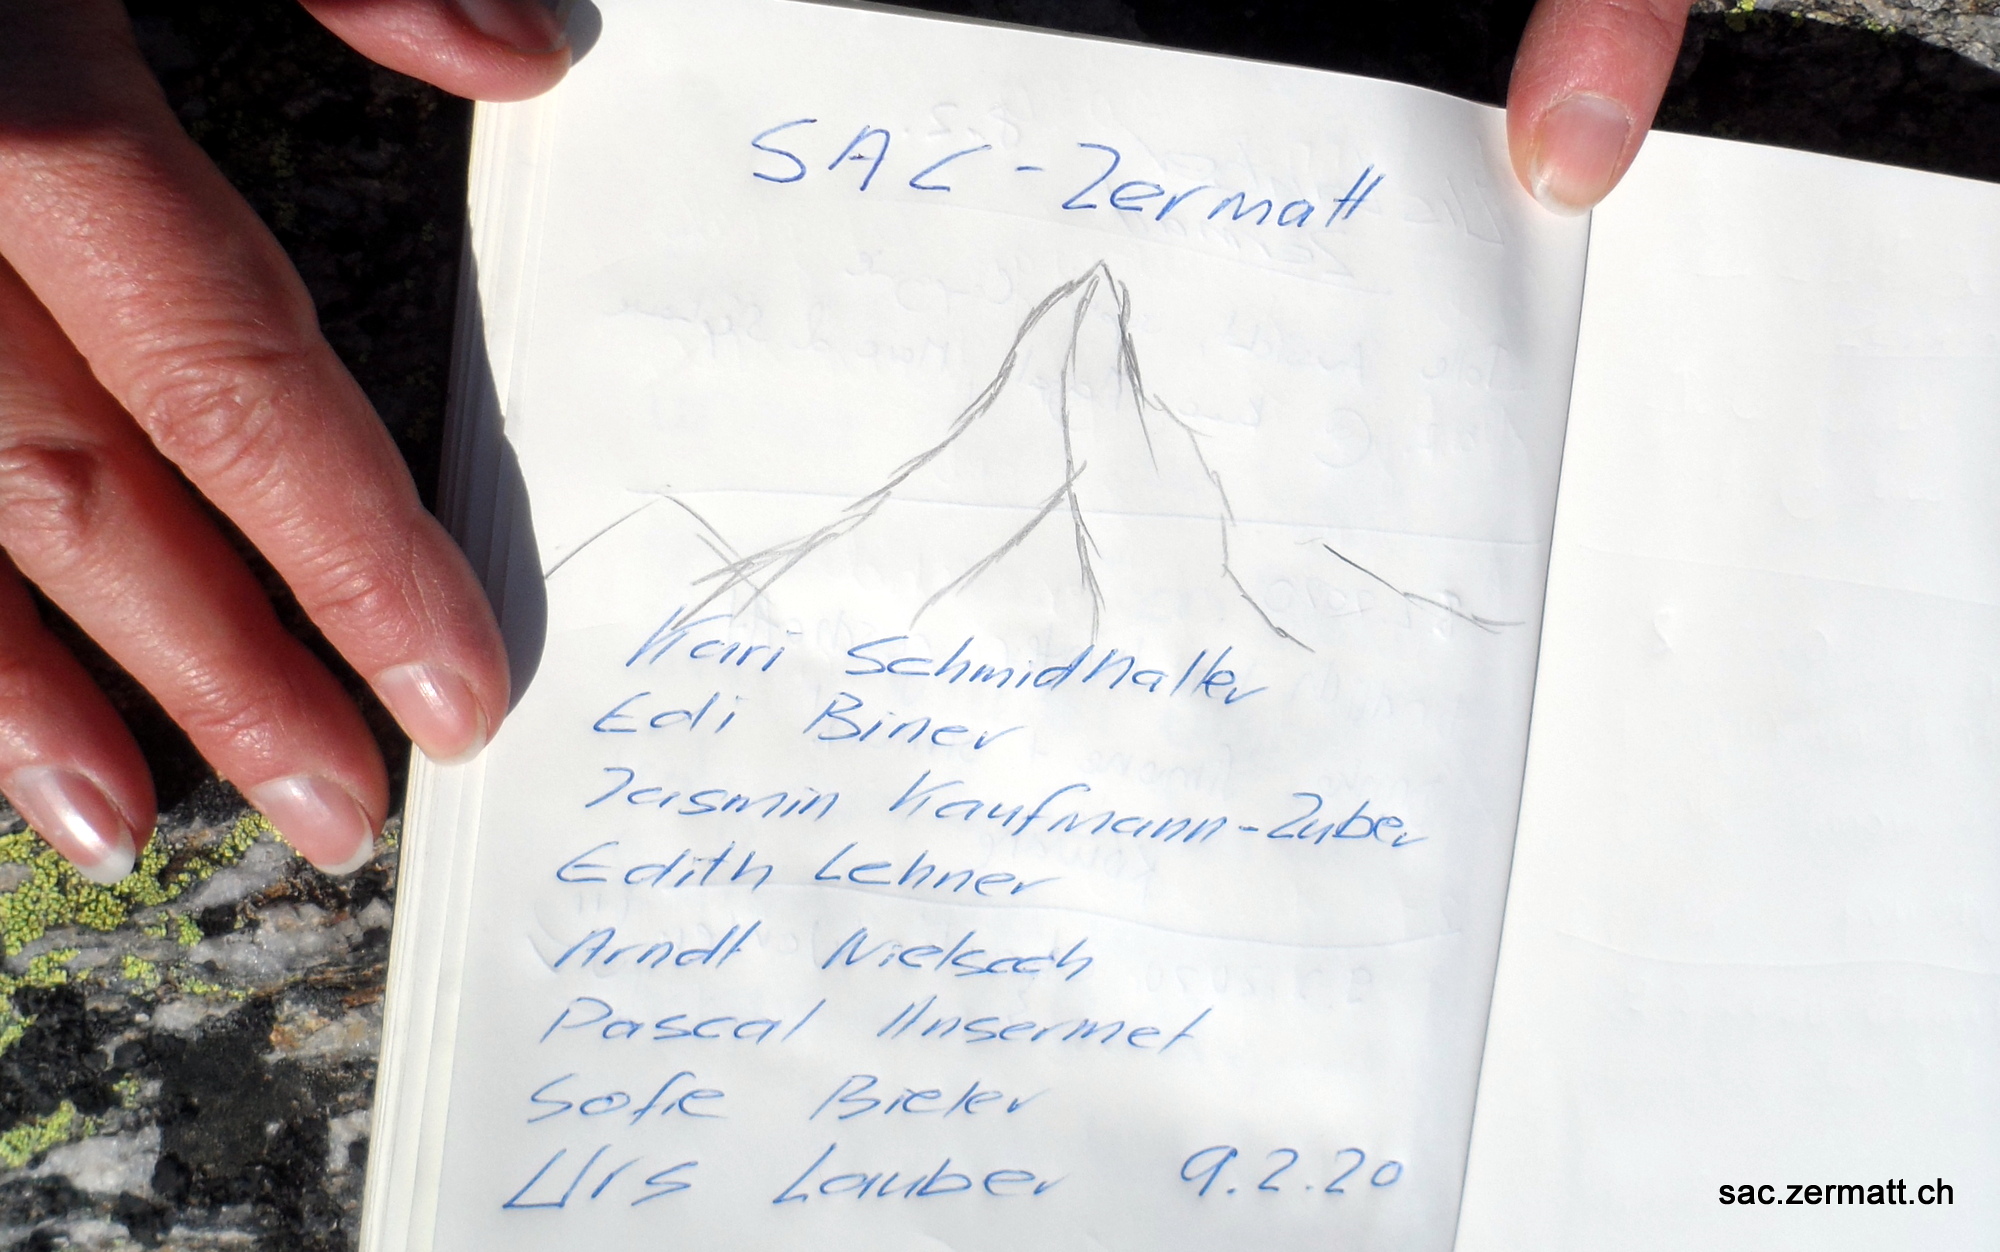 SAC - Zermatt
Kari Schmidhalter
Edi Biner
Jasmin Kaufmann-Zuber
Edith Lehner
Arndt
Pascal Ansermet
Sofie Bieler
Urs Lauber 9.2.20
sac.zermatt.ch